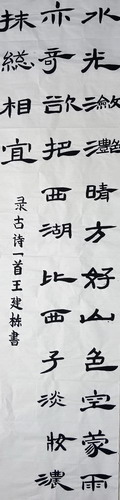 水光瀲灧晴方好山色空蒙雨
亦奇欲把西湖比西子淡妝濃
抹總相宜
录古诗一首王建栋書